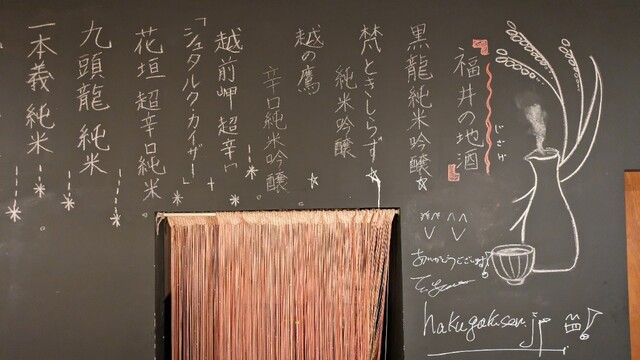 福井の地酒
じざけ
黒龍純米吟醸
梵ときしらず
純米吟醸
越の鷹
辛口純米吟醸
越前岬 超辛
「シュタルク・カイザー」
花垣 超辛口純米
九頭龍 純米
一本義 純米
ありがとうございます
hakugakusen.jp